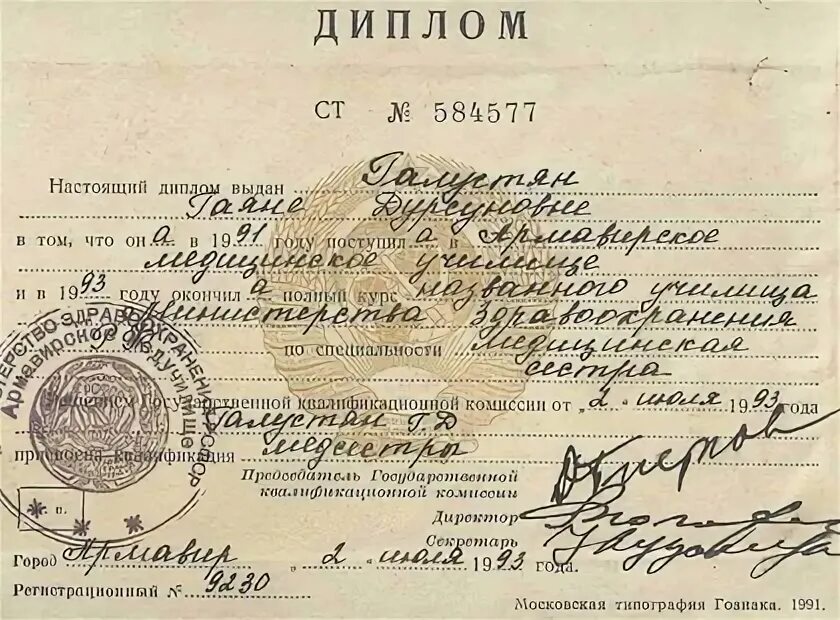 ДИПЛОМ
СТ № 584577
Настоящий диплом выдан Галустян
Гаяне Дурсуновне
в том, что он а в 1991 году поступил а в Армавирское
медицинское училище
и в 1993 году окончил а полный курс названного училища
Министерства Здравоохранения
РФ
по специальности медицинская
сестра
Решением Государственной квалификационной комиссии от „2 “ июля 1993 года
Галустян Г. Д
присвоена квалификация медсестры
Председатель Государственной
квалификационной комиссии
Директор
Секретарь
Город Армавир „ 2 “ июля 1993 года.
Регистрационный № 9230
Московская типография Гознака. 1991.
ЗДРАВООХРАНЕНИЯ РСФСР
Армавирское медучилище
м. п.